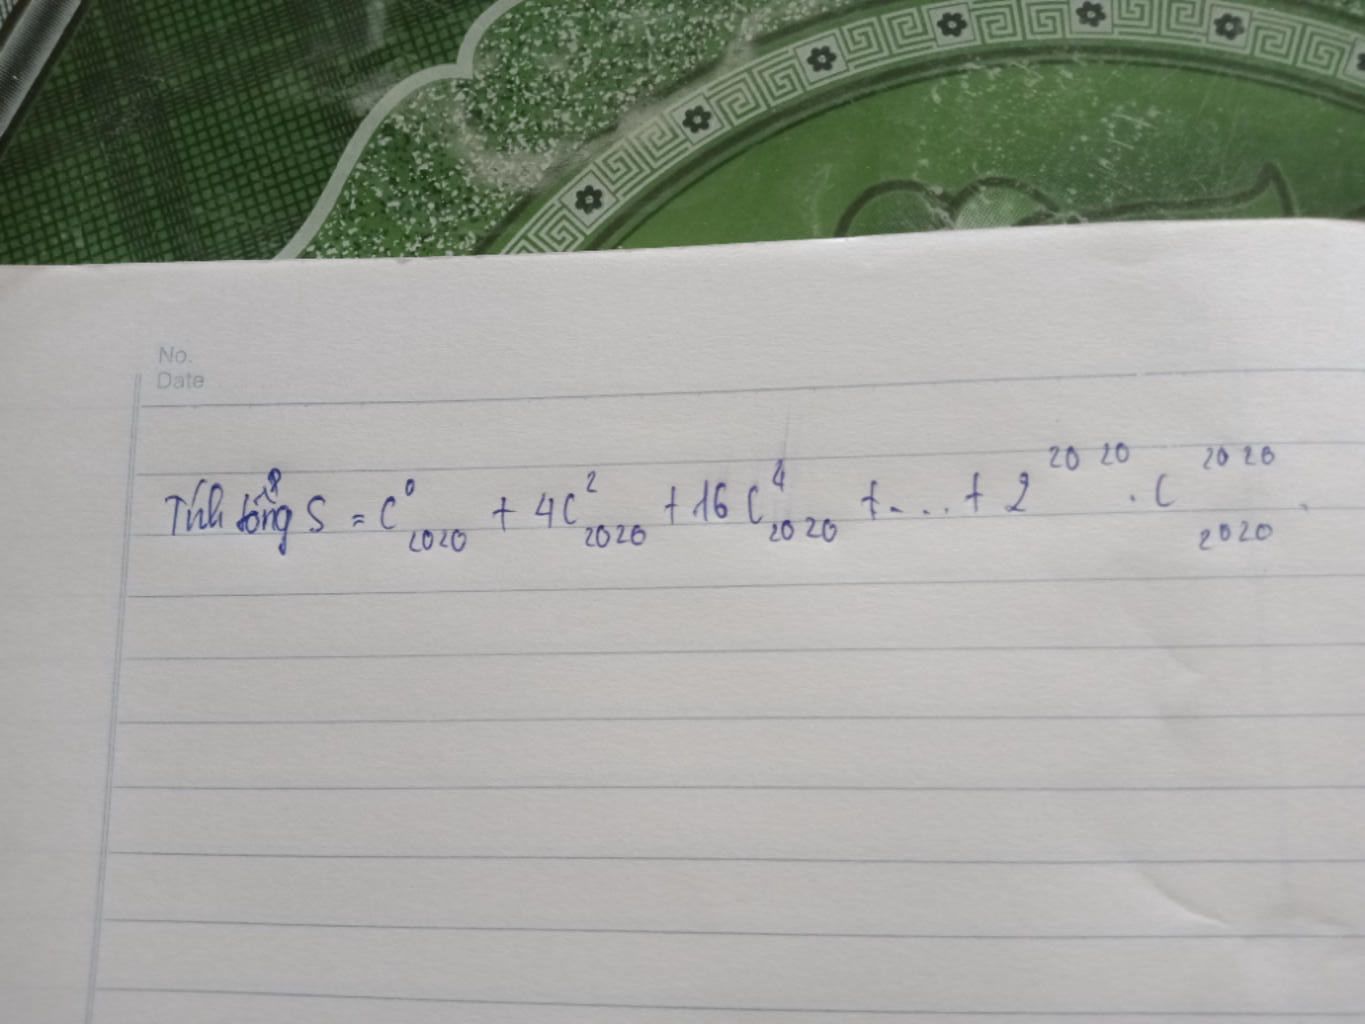 No.
Date
Tính tổng S = C⁰₂₀₂₀ + 4C²₂₀₂₀ + 16C⁴₂₀₂₀ + ... + 2²⁰²⁰ . C²⁰²⁰₂₀₂₀ .